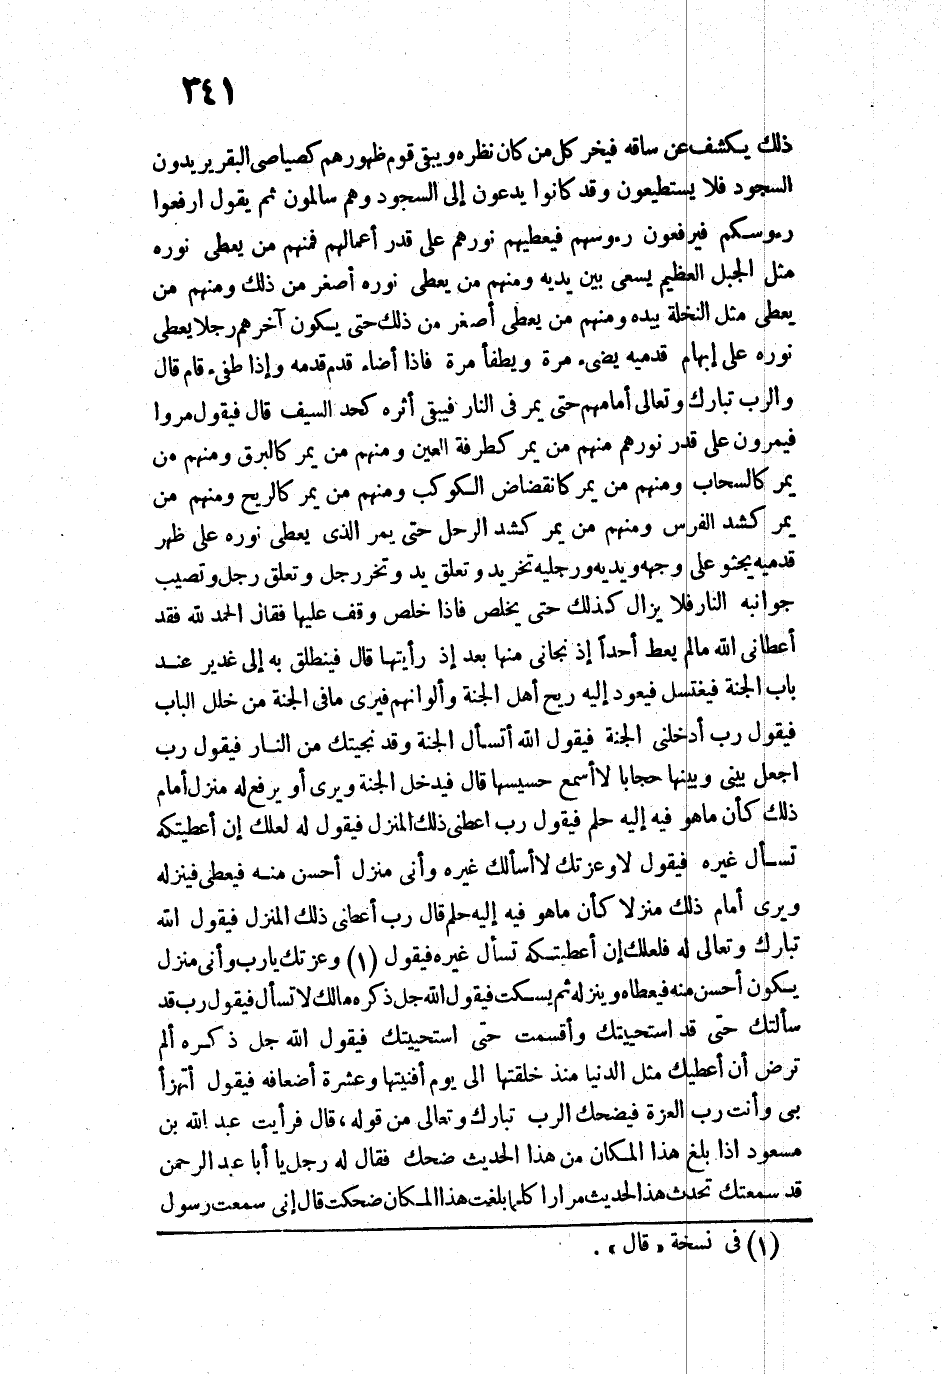 ٣٤١
ذلك يكشف عن ساقه فيخر كل من كان نظره ويبقى قوم ظهورهم كصياصى البقر يريدون
السجود فلا يستطيعون وقد كانوا يدعون إلى السجود وهم سالمون ثم يقول ارفعوا
رءوسكم فيرفعون رءوسهم فيعطيهم نورهم على قدر أعمالهم فمنهم من يعطى نوره
مثل الجبل العظيم يسعى بين يديه ومنهم من يعطى نوره أصغر من ذلك ومنهم من
يعطى مثل النخلة بيده ومنهم من يعطى أصغر من ذلك حتى يكون آخرهم رجلا يعطى
نوره على إبهام قدميه يضىء مرة ويطفأ مرة فاذا أضاء قدم قدمه وإذا طفىء قام قال
والرب تبارك وتعالى أمامهم حتى يمر فى النار فيبقى أثره كحد السيف قال فيقول مروا
فيمرون على قدر نورهم منهم من يمر كطرفة العين ومنهم من يمر كالبرق ومنهم من
يمر كالسحاب ومنهم من يمر كانقضاض الكوكب ومنهم من يمر كالريح ومنهم من
يمر كشد الفرس ومنهم من يمر كشد الرحل حتى يمر الذى يعطى نوره على ظهر
قدميه يجثو على وجهه ويديه ورجليه تخر يد وتعلق يد وتخر رجل وتعلق رجل وتصيب
جوانبه النار فلا يزال كذلك حتى يخلص فاذا خلص وقف عليها فقال الحمد لله فقد
أعطانى الله مالم يعط أحداً إذ نجانى منها بعد إذ رأيتها قال فينطلق به إلى غدير عند
باب الجنة فيغتسل فيعود إليه ريح أهل الجنة وألوانهم فيرى مافى الجنة من خلل الباب
فيقول رب أدخلنى الجنة فيقول الله أتسأل الجنة وقد نجيتك من النار فيقول رب
اجعل بينى وبينها حجابا لا أسمع حسيسها قال فيدخل الجنة ويرى أو يرفع له منزل أمام
ذلك كأن ماهو فيه إليه حلم فيقول رب اعطنى ذلك المنزل فيقول له لعلك إن أعطيتكه
تسأل غيره فيقول لا وعزتك لا أسألك غيره وأنى منزل أحسن منه فيعطى فينزله
ويرى أمام ذلك منزلا كأن ماهو فيه إليه حلم قال رب أعطانى ذلك المنزل فيقول الله
تبارك وتعالى له فلعلك إن أعطيتكه تسأل غيره فيقول (١) وعزتك يارب وأنى منزل
يكون أحسن منه فيعطاه وينزله ثم يسكت فيقول الله جل ذكره مالك لا تسأل فيقول رب قد
سألتك حتى قد استحييتك وأقسمت حتى استحييتك فيقول الله جل ذكره ألم
ترض أن أعطيك مثل الدنيا منذ خلقتها الى يوم أفنيتها وعشرة أضعافه فيقول أتهزأ
بى وأنت رب العزة فيضحك الرب تبارك وتعالى من قوله، قال فرأيت عبد الله بن
مسعود اذا بلغ هذا المكان من هذا الحديث ضحك فقال له رجل يا أبا عبد الرحمن
قد سمعتك تحدث هذا الحديث مرارا كلما بلغت هذا المكان ضحكت قال إنى سمعت رسول
(١) فى نسخة «قال».